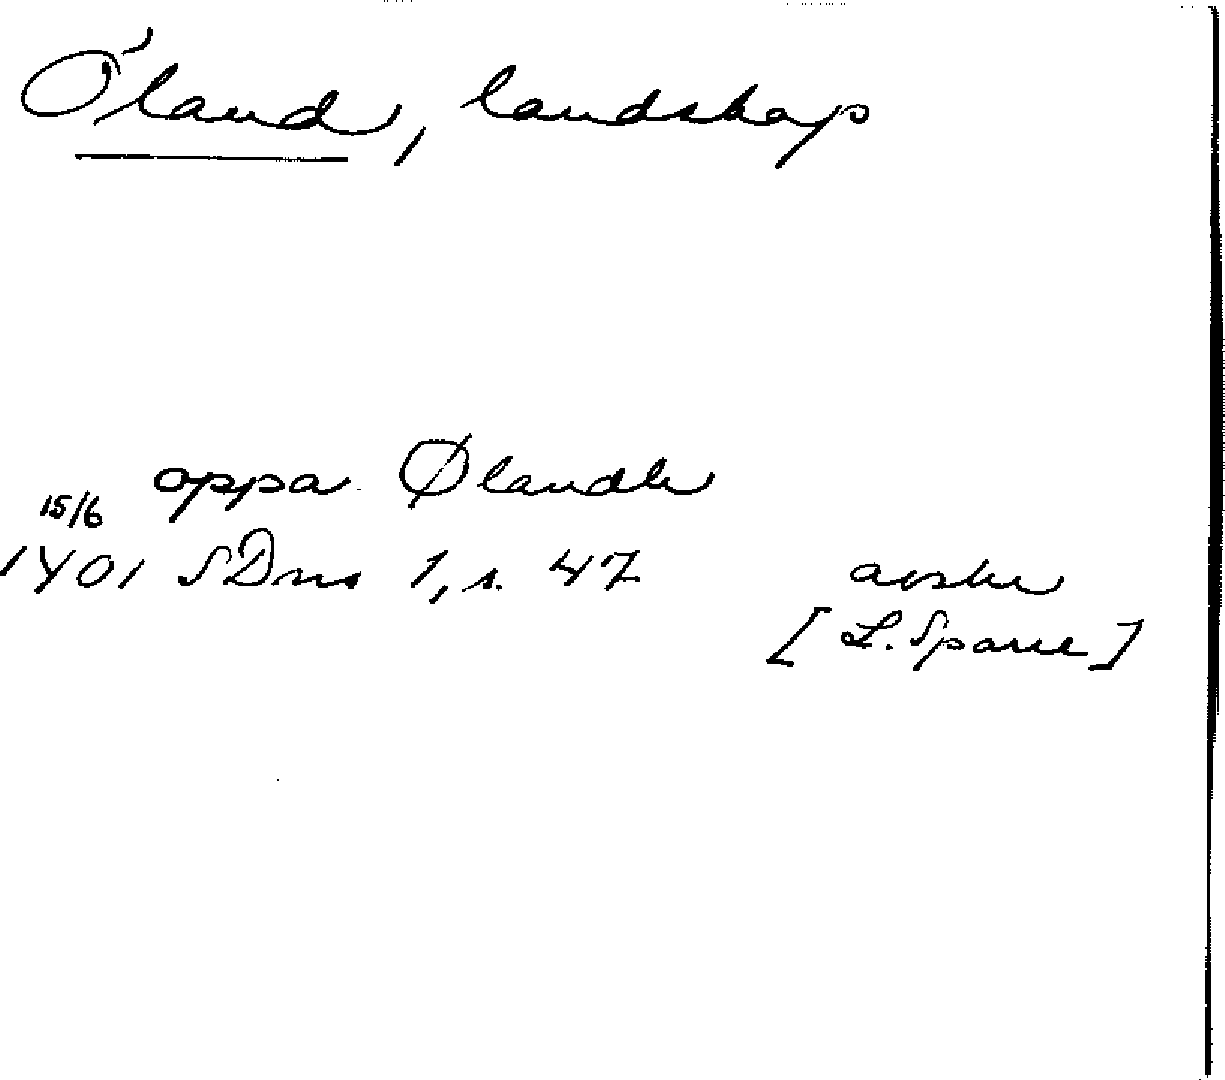 Öland, landskap
oppa Ølandh
15/6
1401 SDns 1, s. 47 avskr
[L. Sparre]